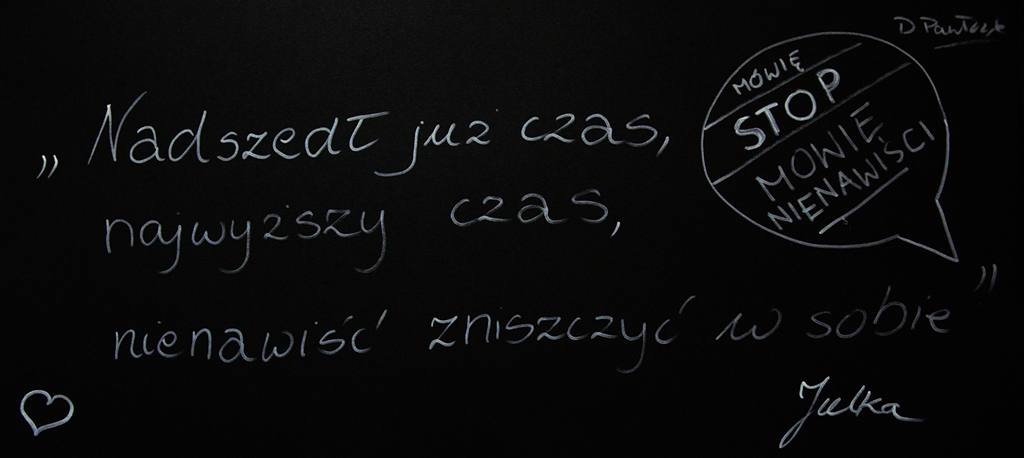 D Pawłczyk
MÓWIĘ
STOP
MOWIĘ
NIENAWIŚCI
„Nadszedł już czas,
najwyższy czas,
nienawiść zniszczyć w sobie”
Julka